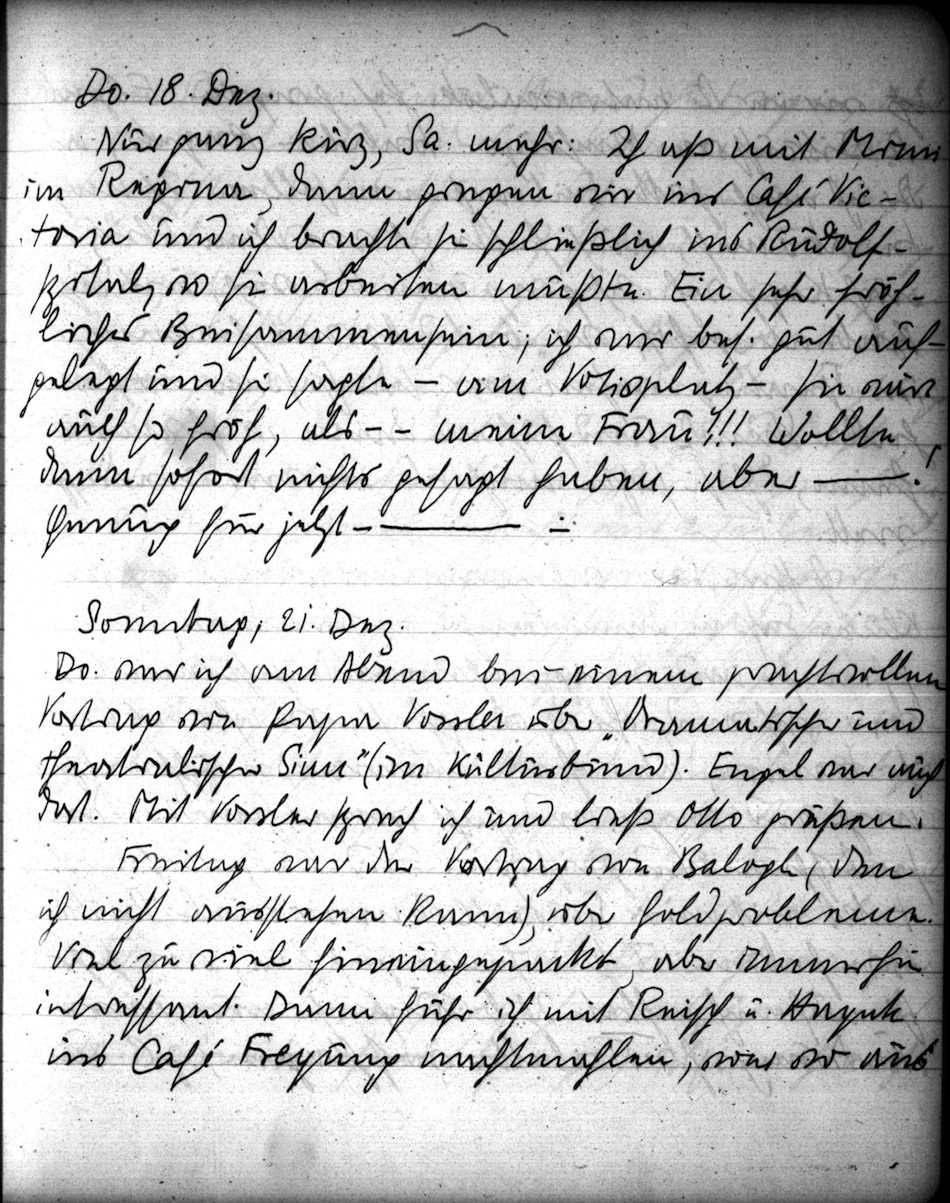 Do. 18. Dez.
Nur ganz kurz, Sa. mehr: Ich aß mit
im Regina, dann gingen wir ins Café Vic-
toria und ich brachte sie schließlich ins Rudolf-
spital, wo sie arbeiten mußte. Ein sehr fröh-
liches Beisammensein; ich war bes. gut auf-
gelegt und sie sagte – am Votivplatz – sie wäre
auch so froh, als – – meine Frau!!! Wollte
dann sofort nichts gesagt haben, aber —!
Genug für jetzt —
Sonntag, 21. Dez.
Do. war ich am Abend bei einem prachtvollen
Vortrag von Papa Vossler über „Dramatischer und
theatralischer Sinn" (im Kulturbund). Engel war auch
dort. Mit Vossler sprach ich und ließ Otto grüßen.
Freitag war der Vortrag von Balogh (den
ich nicht ausstehen kann), über Goldprobleme.
Viel zu viel hineingepackt, aber immerhin
intressant. Dann fuhr ich mit Reisch u. Hayek
ins Café Freyung nachtmahlen, was wo aus